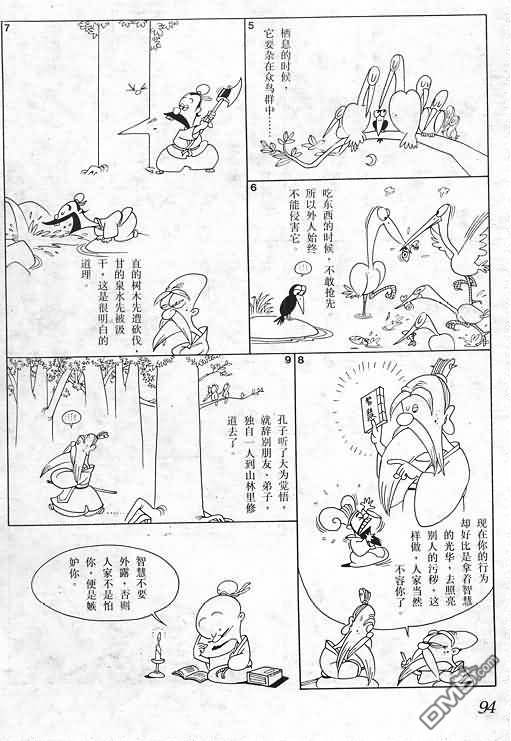 5
栖息的时候，
它要杂在众鸟群中……
6
吃东西的时候，不敢抢先
所以外人始终
不能侵害它。
!!!
7
直的树木先遭砍伐，
甘的泉水先被汲
干，这是很明白的
道理。
8
智慧
现在你的行为
却好比是拿着智慧
的光华，去照亮
别人的污秽，这
样做，人家当然
不容你了。
9
!!!
孔子听了大为觉悟，
就辞别朋友、弟子，
独自一人到山林里修
道去了。
智慧不要
外露，否则
人家不是怕
你，便是嫉
妒你。
94